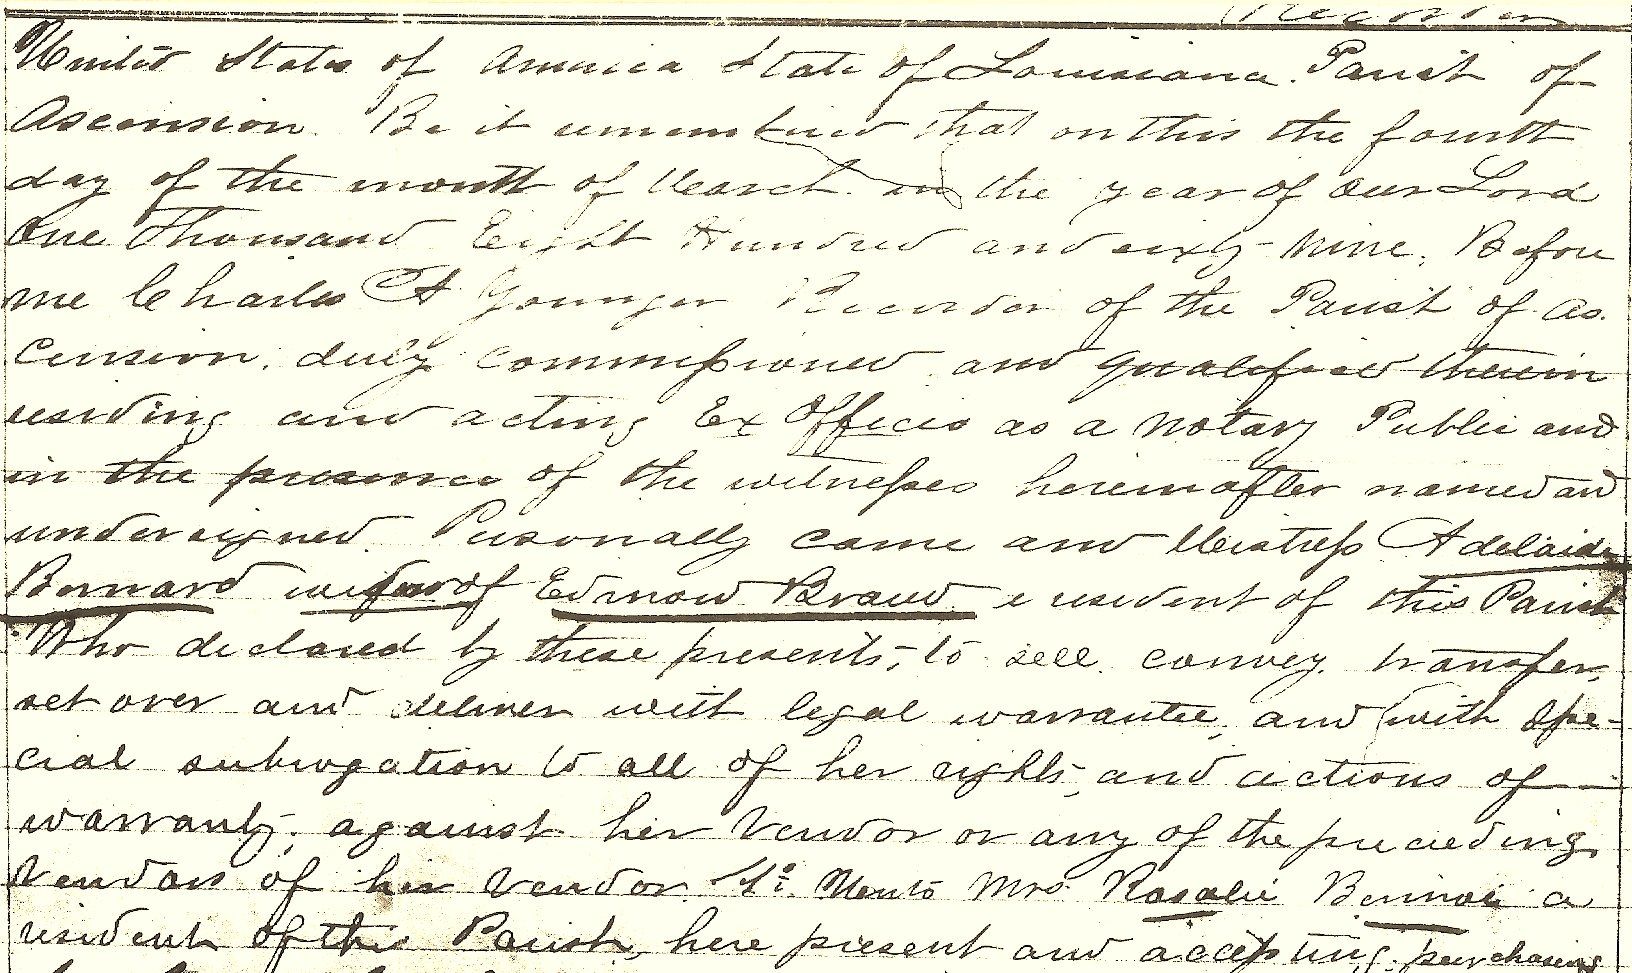 Recorder
United States of America State of Louisiana. Parish of
Ascension. Be it remembered that on this the fourth
day of the month of March in the year of Our Lord
One Thousand Eight Hundred and sixty-Nine. Before
me Charles A Younger Recorder of the Parish of As
cension. duly commissioned and qualified therein
residing and acting Ex Officio as a Notary Public and
in the presence of the witnesses hereinafter named and
undersigned. Personally came and Mistress Adelaide
Bernard widow of Edmow Braud a resident of this Parish
Who declared by these presents, to sell. convey. transfer,
set over and deliver with legal warrantee, and with Spe-
cial subrogation to all of her rights, and actions of
warranty, against her Vendor or any of the preceding
Vendors of her Vendor. Mrs. Rosalie a
resident of this Parish, here present and accepting, purchasing